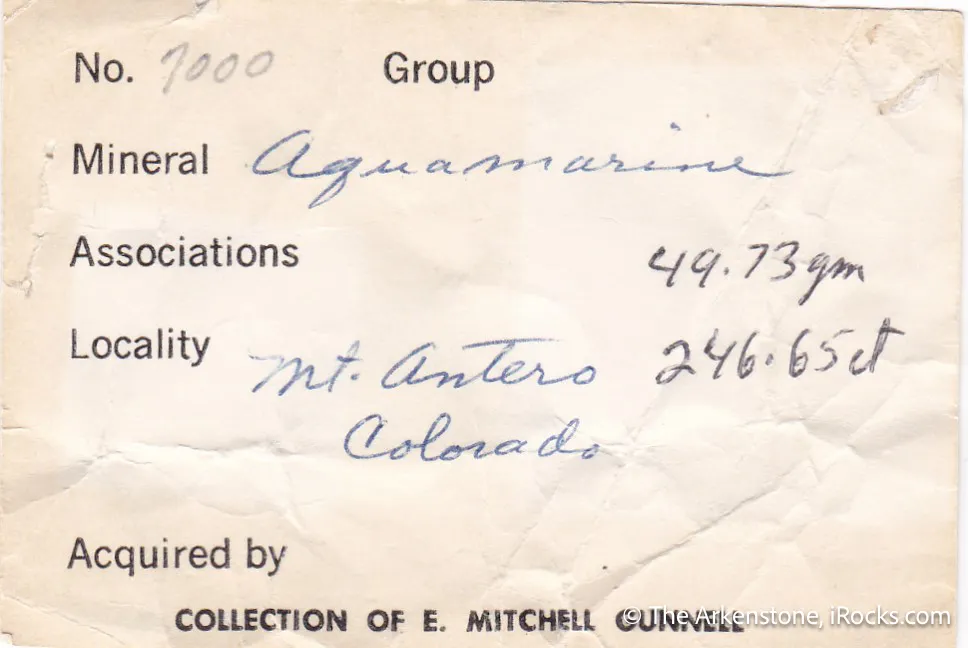 No. 7000 Group
Mineral Aquamarine
Associations 49.73 gm
Locality Mt. Antero 246.65 ct
Colorado
Acquired by
COLLECTION OF E. MITCHELL GUNNELL
© The Arkenstone, iRocks.com